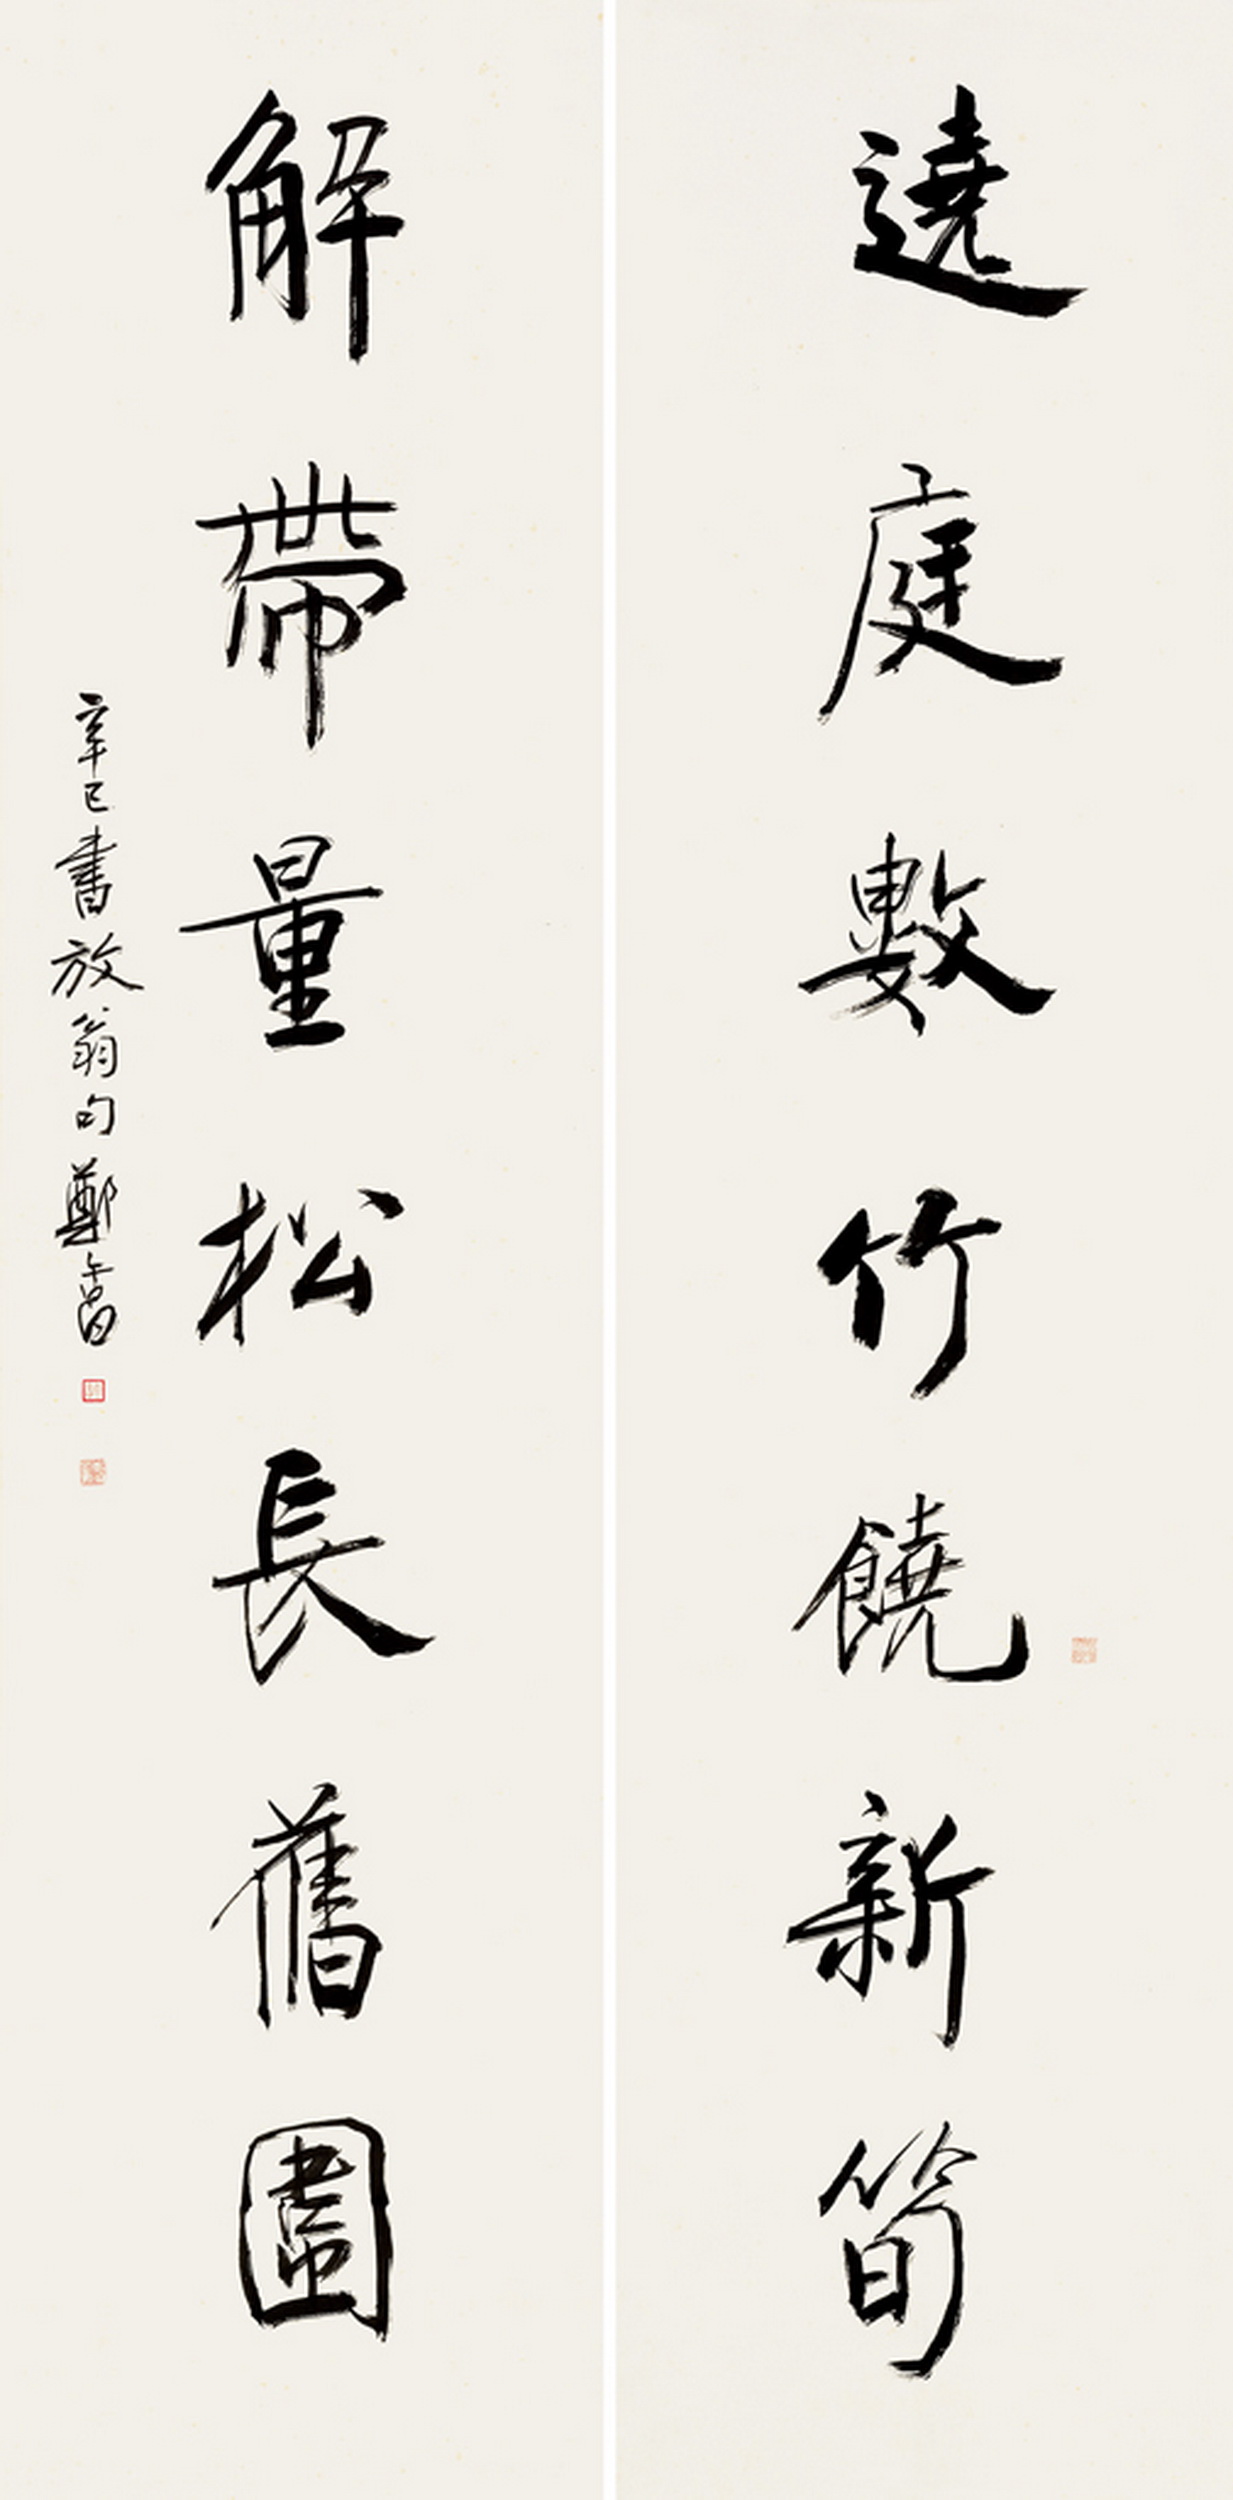 遶庭數竹饒新筍
解帶量松長舊圍
辛巳書放翁句鄭午昌